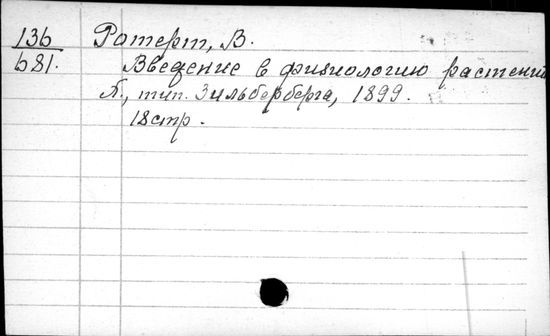 136 Ротерт, В.
681. Введение в физиологию растений
П., тип. Зильберберга, 1899.
18 стр.